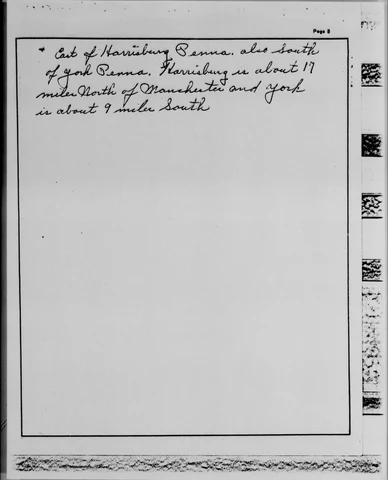 Page 3
* East of Harrisburg Penna. also South
of York Penna. Harrisburg is about 17
miles North of Manchester and York
is about 9 miles South